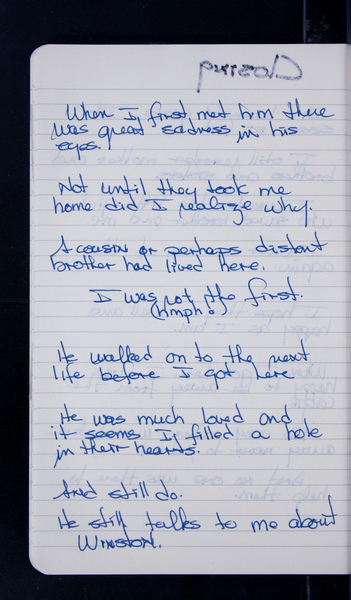 Clossing
When I first met him there
was great sadness in his
eyes.
Not until they took me
home did I realize why.
A cousin or perhaps distant
brother had lived here.
I was not the first.
(hmph!)
He walked on to the next
life before I got here
He was much loved and
it seems I filled a hole
in their hearts.
And still do.
He still talks to me about
Winston.